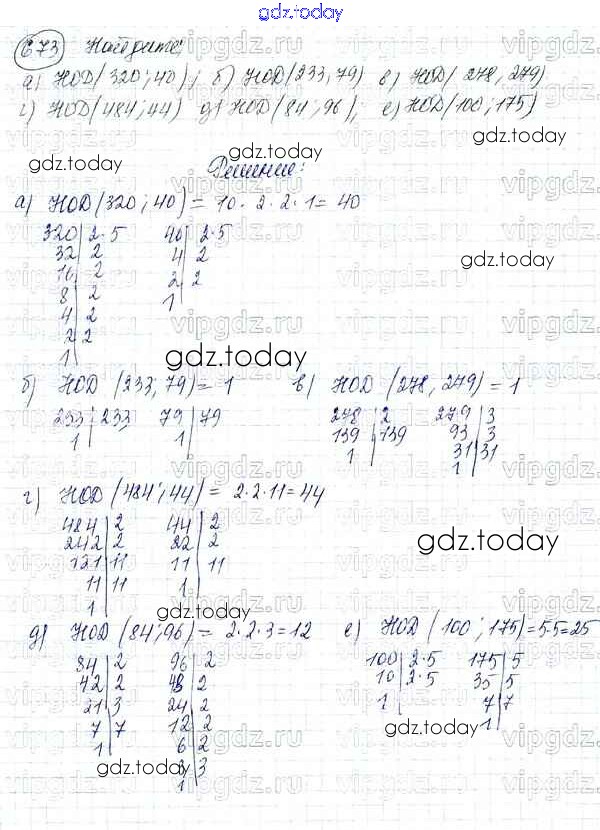 gdz.today
673 Найдите:
а) НОД(320; 40); б) НОД(233, 79) в) НОД(278, 279)
г) НОД(484; 44) д) НОД(84; 96); е) НОД(100; 175)
gdz.today gdz.today
Решение:
а) НОД(320; 40) = 10 · 2 · 2 · 1 = 40
320 | 2·5 40 | 2·5
32 | 2 4 | 2
16 | 2 2 | 2
8 | 2 1
4 | 2
2 | 2
1
gdz.today
б) НОД (233; 79) = 1 в) НОД (278, 279) = 1
233 | 233 79 | 79 278 | 2 279 | 3
1 1 139 | 139 93 | 3
1 31 | 31
1
г) НОД (484; 44) = 2·2·11 = 44
484 | 2 44 | 2
242 | 2 22 | 2
121 | 11 11 | 11
11 | 11 1
1
gdz.today
д) НОД (84; 96) = 2·2·3 = 12 е) НОД (100; 175) = 5·5 = 25
84 | 2 96 | 2 100 | 2·5 175 | 5
42 | 2 48 | 2 10 | 2·5 35 | 5
21 | 3 24 | 2 1 7 | 7
7 | 7 12 | 2 1
1 6 | 2
3 | 3
1
gdz.today gdz.today
vipgdz.ru